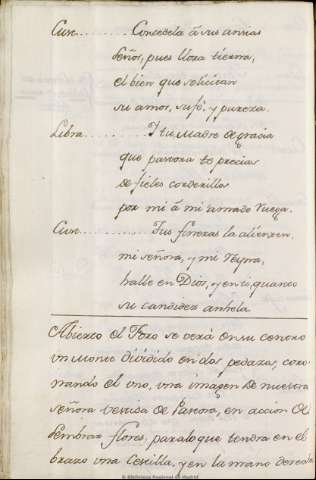 Cur......... Concedela á sus ansias
Señor, pues llora tierna,
el bien que solicitan
su amor, su fé, y pureza.
Libra......... Y tu Madre de gracia
que pastora te precias
de fieles corderillos
por mi á mi amado ruega.
Cur............ Tus finezas la alienzen,
mi señora, y mi Reyna,
halle en Dios, y en ti, quanto
su candidez anhela.
Abierto el Foro se verá en su centro
un monte dividido en dos pedazos, coro-
nando el uno, una imagen de nuestra
Señora vestida de Pastora, en accion de
sembrar flores, para lo que tendra en el
brazo una Cestilla, y en la mano derecha
© Biblioteca Nacional de Madrid